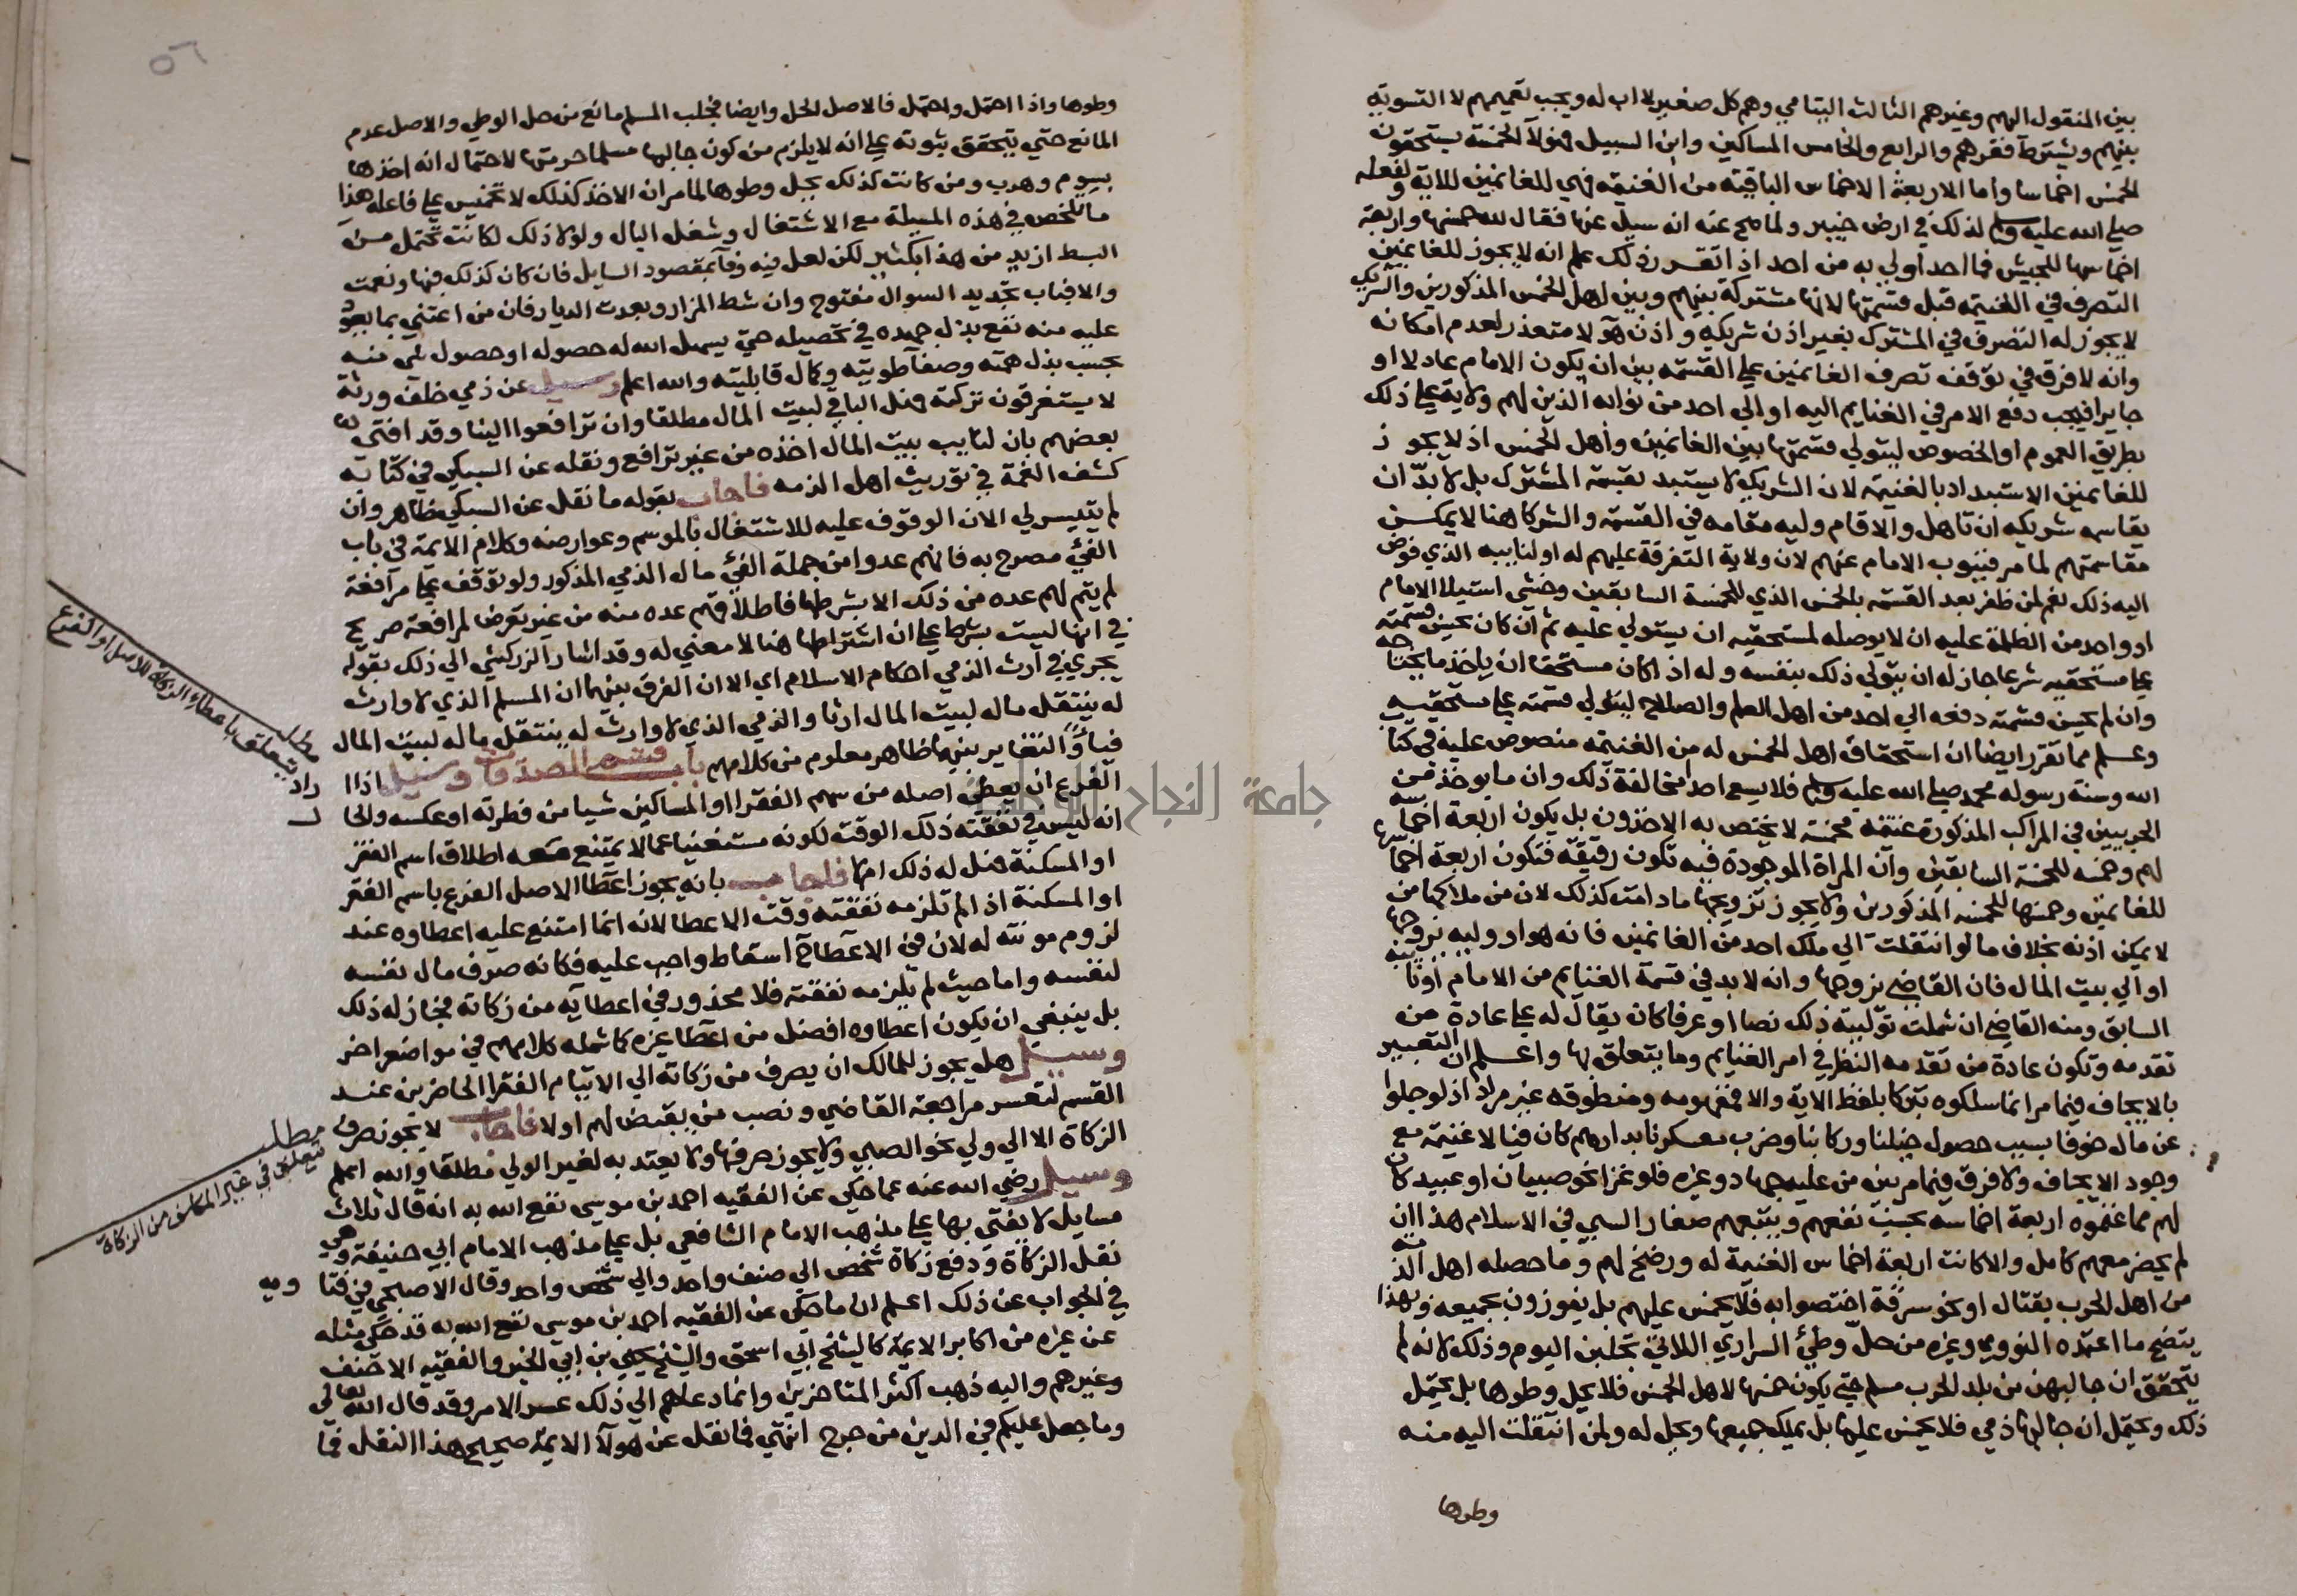 بين المنقول اليهم وغيرهم الثالث اليتامي وهم كل صغير لا اب له ويجب تعميمهم لا التسوية
بينهم ويشترط فقرهم والرابع والخامس المساكين وابن السبيل فهؤلآ الخمسة يستحقون
الخمس اخماسا واما الاربعة الاخماس الباقية من الغنيمة فهي للغانمين للاية ولفعله
صلى الله عليه وسلم لذلك في ارض خيبر ولما صح عنه انه سيل عنها فقال لله خمسها واربعة
اخماسها للجيش فما احد اولي به من احد اذا تقرر ذلك علم انه لا يجوز للغانمين
التصرف في الغنيمة قبل قسمتها لانها مشتركة بينهم وبين اهل الخمس المذكورين والشريك
لا يجوز له التصرف في المشترك بغير اذن شريكه واذن هؤلا متعذر لعدم امكانه
وانه لا فرق في توقف تصرف الغانمين علي القسمة بين ان يكون الامام عادلا او
جايرا فيجب دفع الامر في الغنايم اليه او الي احد من نوابه الذين لهم ولاية علي ذلك
بطريق العموم او الخصوص ليتولي قسمتها بين الغانمين واهل الخمس اذ لا يجوز
للغانمين الاستبداد بالغنيمة لان الشريك لا يستبد بقسمة المشترك بل لا بد ان
يقاسمه شريكه ان تاهل والا قام وليه مقامه في القسمة والشركا هنا لا يمكن
مقاسمتهم لما مر فينوب الامام عنهم لان ولاية التفرقة عليهم له او لنايبه الذي فوض
اليه ذلك نعم لمن ظفر بعد القسمة بالخمس الذي للخمسة السابقين وخشي استيلا الامام
او واحد من الظلمة عليه ان لا يوصله لمستحقيه ان يستولي عليه ثم ان كان يحسن قسمته
علي مستحقيه شرعا جاز له ان يتولي ذلك بنفسه وله اذا كان مستحقا ان ياخذ ما يحتاجه
وان لم يحسن قسمته دفعه الي احد من اهل العلم والصلاح ليتولي قسمته علي مستحقيه
وعلم مما تقرر ايضا ان استحقاق اهل الخمس له من الغنيمة منصوص عليه في كتاب
الله وسنة رسوله محمد صلى الله عليه وسلم فلا يسع احدا مخالفة ذلك وان ما يوخذ من
الحربيين في المراكب المذكورة غنيمة مخمسة لا يختص به الاخذون بل يكون اربعة اخماسه
لهم وخمسه للخمسة السابقين وان المراة الموجودة فيه تكون رقيقة فتكون اربعة اخماسها
للغانمين وخمسها للخمسة المذكورين ولا يجوز تزويجها ما دامت كذلك لان من ملاكها من
لا يمكن اذنه بخلاف ما لو انتقلت الي ملك احد من الغانمين فانه هو او وليه يزوجها
او الي بيت المال فان القاضي يزوجها وانه لا بد في قسمة الغنايم من الامام او نايبه
السابق ومنه القاضي ان شملت توليته ذلك نصا او عرفا كان يقال له علي عادة من
تقدمه وتكون عادة من تقدمه النظر في امر الغنايم وما يتعلق بها واعلم ان التعبير
بالايجاف فيما مر انما سلكوه تبركا بلفظ الاية والا فمفهومه ومنطوقه غير مراد اذ لو جلوا
عن مال خوفا بسبب حصول خيلنا وركابنا وضرب معسكرنا بدارهم كان فيا لا غنيمة مع
وجود الايجاف ولا فرق فيما مر بين من عليه جهاد وغيره فلو غزا نحو صبيان او عبيد كان
لهم مما غنموه اربعة اخماسه بحسب نفعهم ويتبعهم صغار السبي في الاسلام هذا ان
لم يحضر معهم كامل والا كانت اربعة اخماس الغنيمة له ورضخ لهم وما حصله اهل الذمة
من اهل الحرب بقتال او نحو سرقة اختصوا به فلا يخمس عليهم بل يفوزون بجميعه وبهذا
يتضح ما اعتمده النووي وغيره من حل وطئ السراري اللاتي تجلبن اليوم وذلك لانه لم
يتحقق ان جالبهن من بلد الحرب مسلم حتي يكون خمسها لاهل الخمس فلا يحل وطوها بل يحتمل
ذلك ويحتمل ان جالبها ذمي فلا يخمس عليها بل يملك جميعها ويحل له ولمن انتقلت اليه منه
وطوها
٥٦
وطوها واذا احتمل واحتمل فالاصل الحل وايضا فجلب المسلم مانع من حل الوطي والاصل عدم
المانع حتي يتحقق ثبوته علي انه لا يلزم من كون جالبها مسلما حرمتها لاحتمال انه اخذها
بسوم وهرب ومن كانت كذلك يحل وطوها لما مر ان الاخذ كذلك لا تخميس علي فاعله هذا
ما تلخص في هذه المسيلة مع الاشتغال وشغل البال ولولا ذلك لكانت تحتمل من
البسط ازيد من هذا بكثير لكن لعل فيه وفآ بمقصود السايل فان كان كذلك فبها ونعمت
والا فباب تجديد السوال مفتوح وان شط المزار وبعدت الديار فان من اعتني بما يعود
عليه منه نفع بذل جهده في تحصيله حتي يسهل الله له حصوله او حصول شي منه
بحسب بذل همته وصفآ طويته وكمال قابليته والله اعلم وسيل عن ذمي خلف ورثة
لا يستغرقون تركته فهل الباقي لبيت المال مطلقا وان ترافعوا الينا وقد افتي
بعضهم بان لنايب بيت المال اخذه من غير ترافع ونقله عن السبكي في كتابه
كشف الغمة في توريث اهل الذمه فاجاب بقوله ما نقل عن السبكي ظاهر وان
لم يتيسر لي الان الوقوف عليه للاشتغال بالموسم وعوارضه وكلام الايمة في باب
الفئ مصرح به فانهم عدوا من جملة الفئ مال الذمي المذكور ولو توقف علي مرافعة
لم يتم لهم عده من ذلك الا بشرطها فاطلاقهم عده منه من غير تعرض لمرافعة صريح
في انها ليست بشرط علي ان اشتراطها هنا لا معني له وقد اشار الزركشي الي ذلك بقوله
يجري في ارث الذمي احكام الاسلام اي الا ان الفرق بينهما ان المسلم الذي لا وارث
له ينتقل ماله لبيت المال ارثا والذمي الذي لا وارث له ينتقل ماله لبيت المال
فيأ والتغاير بينهما ظاهر معلوم من كلامهم باب قسم الصدقات وسيل اذا اراد
الفرع ان يعطي اصله من سهم الفقرا او المساكين شيا من فطرته او عكسه والحال
انه ليس في نفقته ذلك الوقت لكونه مستغنيا عما لا يمتنع معه اطلاق اسم الفقر
او المسكنة فهل له ذلك ام لا فاجاب بانه يجوز اعطا الاصل الفرع باسم الفقر
او المسكنة اذا لم تلزمه نفقته وقت الاعطا لانه انما امتنع عليه اعطاوه عند
لزوم مونته له لان في الاعطآ اسقاط واجب عليه فكانه صرف مال نفسه
لنفسه واما حيث لم تلزمه نفقته فلا محذور في اعطايه من زكاته فجاز له ذلك
بل ينبغي ان يكون اعطاوه افضل من اعطا غيره كما شمله كلامهم في مواضع اخر
وسيل هل يجوز للمالك ان يصرف من زكاته الي الايتام الفقرا الحاضرين عند
القسم لتعسر مراجعة القاضي ونصب من يقبض لهم او لا فاجاب لا يجوز صرف
الزكاة الا الي ولي نحو الصبي ولا يجوز صرفها ولا يعتد به لغير الولي مطلقا والله اعلم
وسيل رضي الله عنه عما حكي عن الفقيه احمد بن موسي نفع الله به انه قال ثلاث
مسايل لا يفتي بها علي مذهب الامام الشافعي بل علي مذهب الامام ابي حنيفة وهي
نقل الزكاة ودفع زكاة شخص الي صنف واحد والي شخص واحد وقال الاصبحي في فتاويه
في الجواب عن ذلك اعلم ان ما حكي عن الفقيه احمد بن موسي نفع الله به قد حكي مثله
عن غيره من اكابر الايمة كالشيخ ابي اسحق والشيخ يحيي بن ابي الخير والفقيه الاحنف
وغيرهم واليه ذهب اكثر المتاخرين وانما دعاهم الي ذلك عسر الامر وقد قال الله تعالى
وما جعل عليكم في الدين من حرج انتهي فما نقل عن هولآ الايمة صحيح هذا النقل فما
مطلب
يتعلق باعطاء الزكاة للاصل او الفرع
مطلب
يتعلق في غير المكلف من الزكاة
جامعة النجاح الوطنية